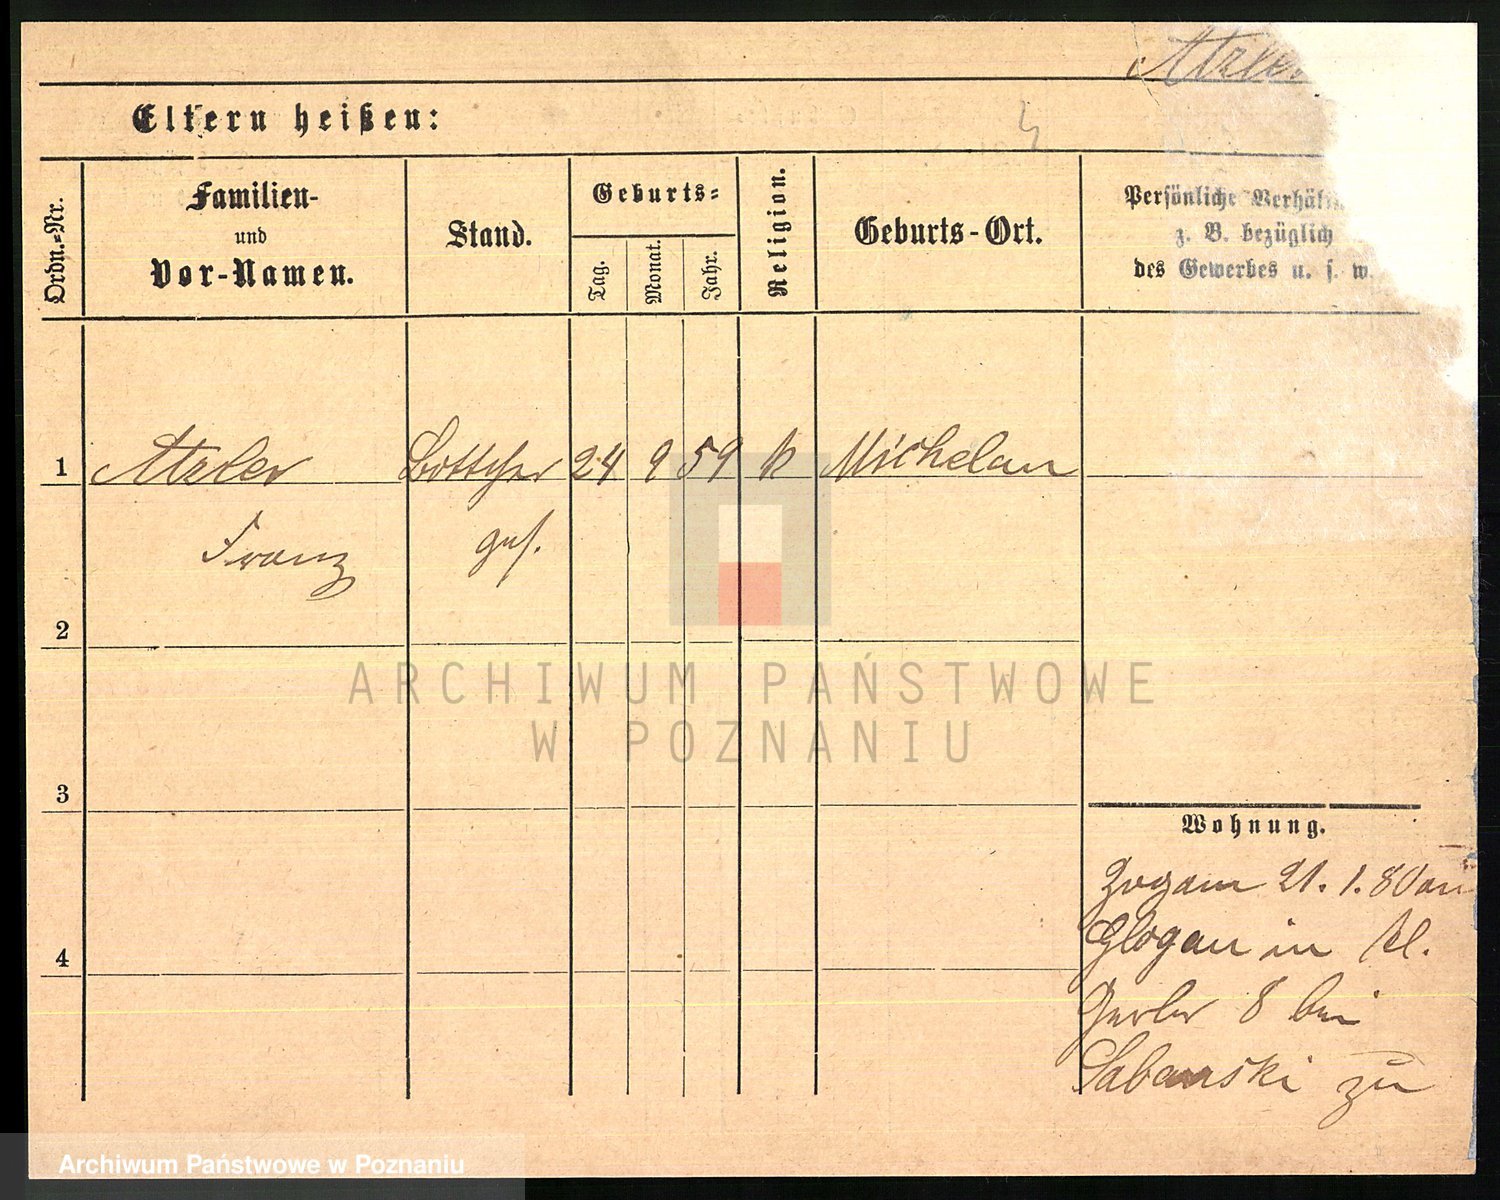 Atzler
Eltern heißen:
Ordn.=Nr.
Familien-
und
Vor-Namen.
Stand.
Geburts=
Tag.
Monat.
Jahr.
Religion.
Geburts-Ort.
Persönliche Verhält
z. B. bezüglich
des Gewerbes u. s. w.
1 Atzler Böttcher 24 9 59 k Michelau
Franz ges.
2
3
4
Wohnung.
Zogam 21. 1. 80 aus
Glogau in Kl.
Gerber 8 bei
Labanski zu
ARCHIWUM PAŃSTWOWE
W POZNANIU
Archiwum Państwowe w Poznaniu